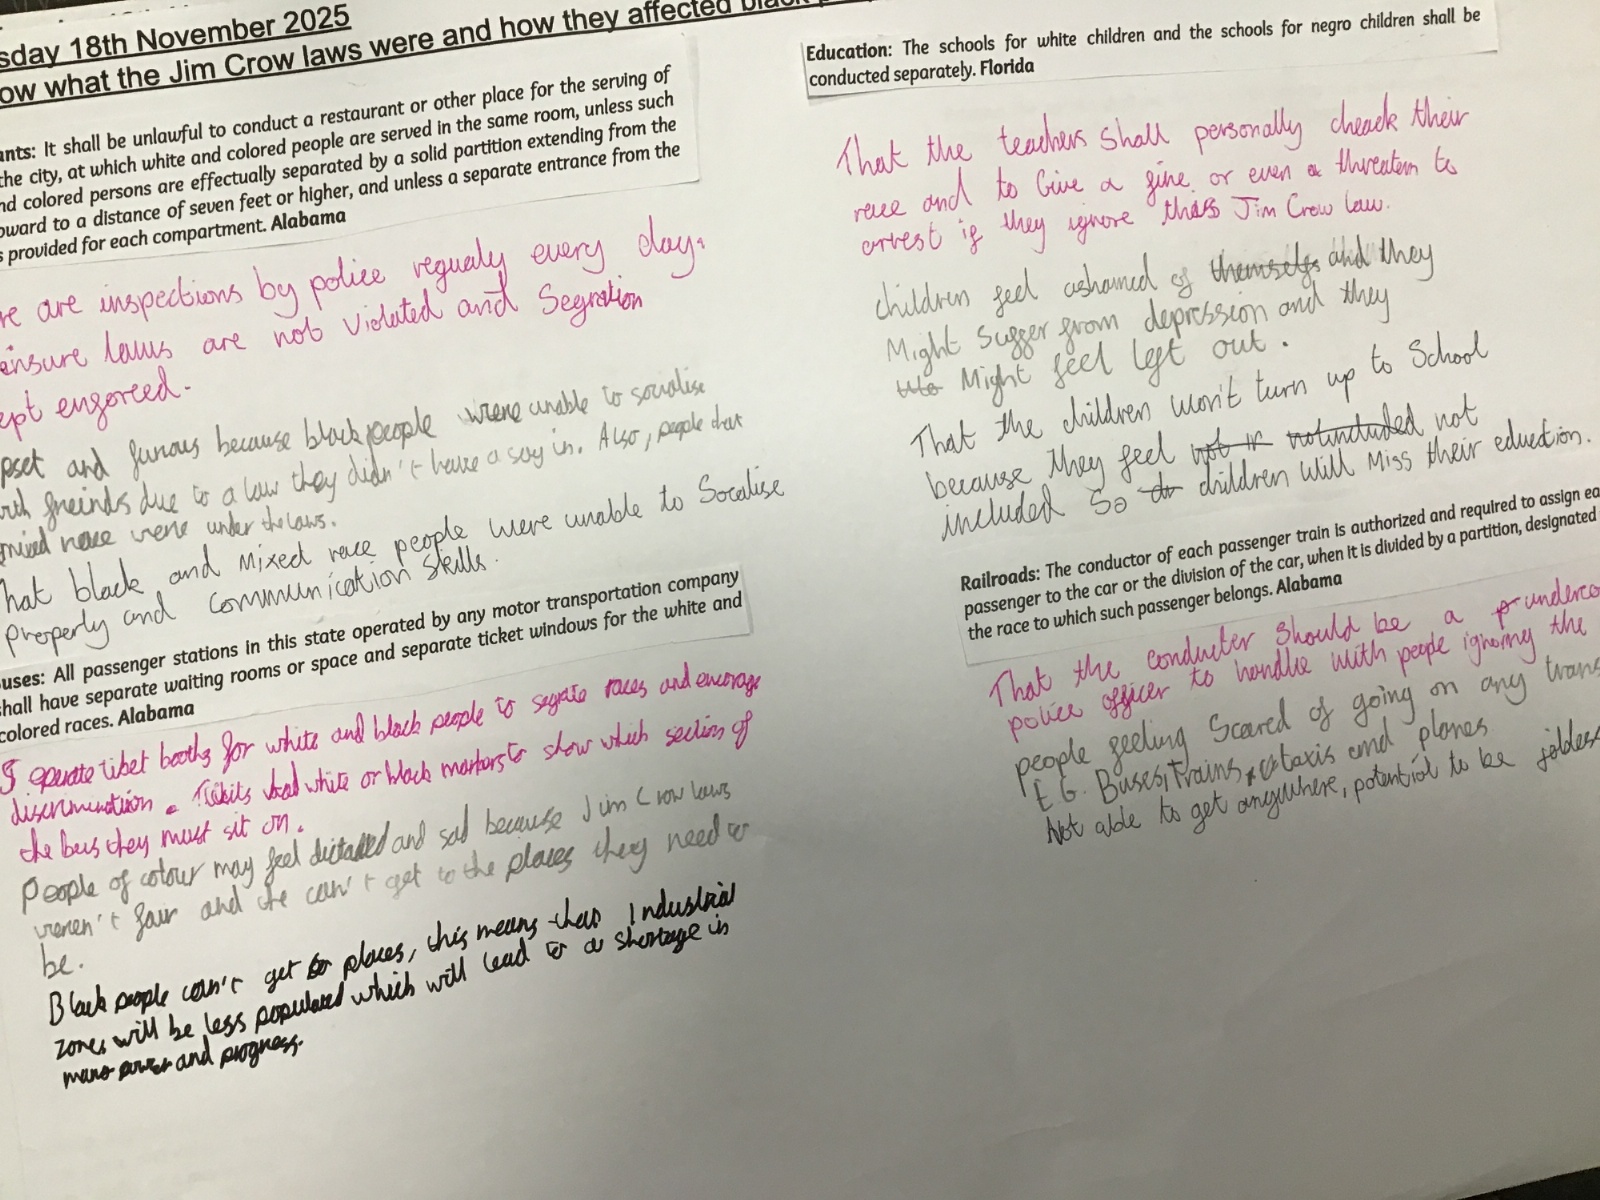 sday 18th November 2025
ow what the Jim Crow laws were and how they affected black
ants: It shall be unlawful to conduct a restaurant or other place for the serving of
the city, at which white and colored people are served in the same room, unless such
nd colored persons are effectually separated by a solid partition extending from the
oward to a distance of seven feet or higher, and unless a separate entrance from the
s provided for each compartment. Alabama
re are inspections by police regualy every day.
einsure laws are not violated and Segration
ept enforced.
pset and furious because black people were unable to socialise
with freinds due to a law they didn't have a say in. Also, people that
mixed race were under the laws.
hat black and Mixed race people were unable to Socalise
properly and communication skills.
uses: All passenger stations in this state operated by any motor transportation company
shall have separate waiting rooms or space and separate ticket windows for the white and
colored races. Alabama
I operate ticket booths for white and black people to segrate races and encorage
discrimination. Tickits had white or black markers to show which section of
the bus they must sit on.
People of colour may feel dictated and sad because Jim Crow laws
weren't fair and the can't get to the places they need to
be.
Black people can't get to places, this means that Industrial
zones will be less populated which will lead to a shortage in
man power and progress.
Education: The schools for white children and the schools for negro children shall be
conducted separately. Florida
That the teachers shall personally cheack their
race and to Give a fine or even a threaten to
arrest if they ignore this Jim Crow law.
children feel ashamed of themselfs and they
Might suffer from depression and they
Might feel left out.
That the children won't turn up to School
because they feel not in notincluded not
included So children will Miss their eduction.
Railroads: The conductor of each passenger train is authorized and required to assign ea
passenger to the car or the division of the car, when it is divided by a partition, designated
the race to which such passenger belongs. Alabama
That the conducter should be a underco
police officer to handle with people ignoring the
people feeling Scared of going on any trans
E.G. Buses, Trains, taxis and planes
Not able to get anywhere, potential to be